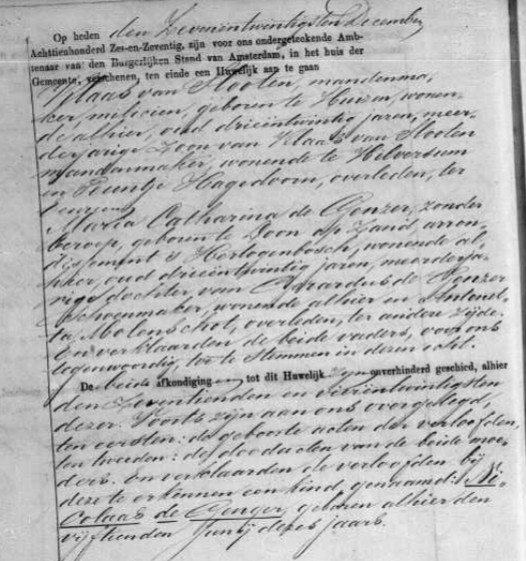 Op heden den Zevenentwintigsten December
Achttienhonderd Zes-en-Zeventig, zijn voor ons ondergeteekende Amb-
tenaar van den Burgerlijken Stand van Amsterdam, in het huis der
Gemeente, verschenen, ten einde een Huwelijk aan te gaan
Klaas van Slooten, mandenma-
ker, milicien, geboren te Huizen, wonen-
de alhier, oud drieëntwintig jaren, meer-
derjarige Zoon van Klaas van Slooten
mandenmaker, wonende te Hilversum
en Hagedoorn, overleden, ter
eenre en
Maria Catharina de Gonzer, zonder
beroep, geboren te Loon op Zand, arron-
dissement 's Hertogenbosch, wonende al-
hier, oud drieëntwintig jaren, meerderja-
rige dochter van Gerardus de Gonzer
schoenmaker, wonende alhier en Antonet-
ta Molenschot, overleden, ter andere zijde.
En verklaarden de beide vaders, voor ons
tegenwoordig, toe te stemmen in dezen echt.
De beide afkondigingen tot dit Huwelijk zijn onverhinderd geschied, alhier
den Zeventienden en vierentwintigsten
dezer. Voorts zijn aan ons overgelegd,
ten eersten: de geboorte acten der verloofden,
ten tweede: de doodacten van de beide moe-
ders. En verklaarden de verloofden bij
deze te erkennen een kind, genaamd: Ni-
colaas de Gonzer, geboren alhier den
vijftienden Junij dezes jaars.